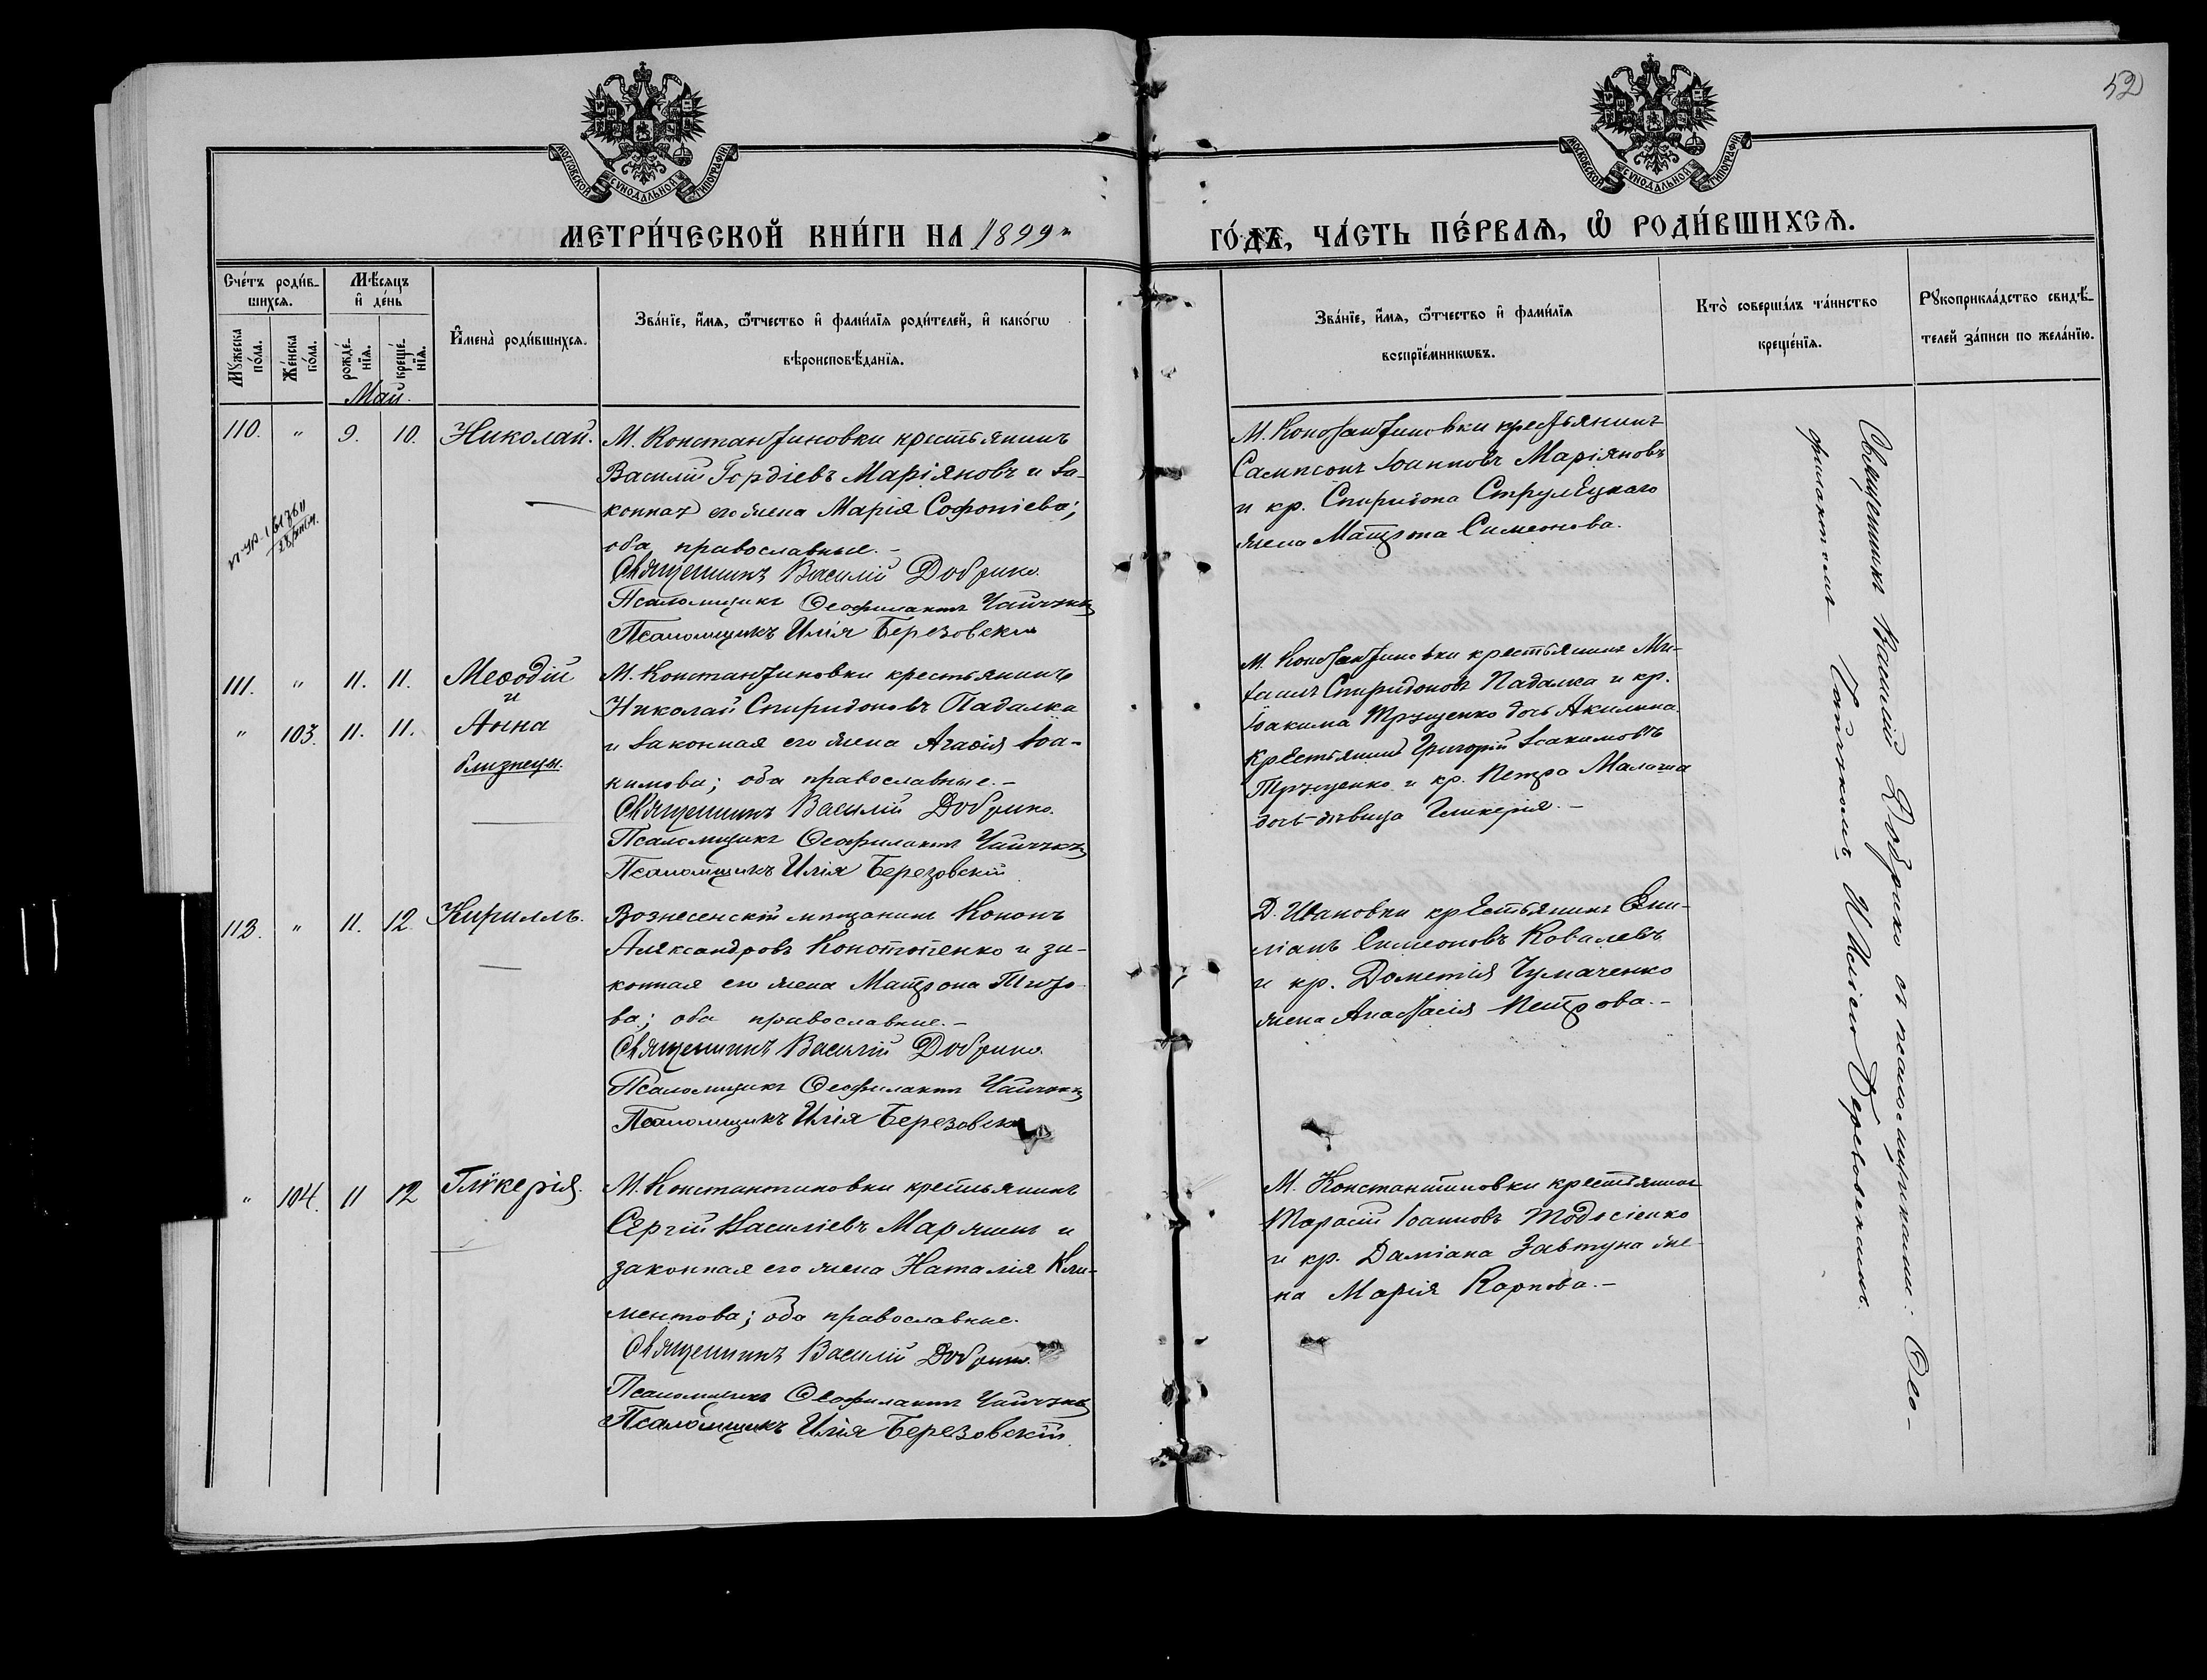 52
МОСКОВСКОЙ СУНОДАЛЬНОЙ ТИПОГРАФІИ
МОСКОВСКОЙ СУНОДАЛЬНОЙ ТИПОГРАФІИ
МЕТРИ́ЧЕСКОЙ КНИ́ГИ НА 1899й
ГО́ДЪ, ЧА́СТЬ ПЕ́РВАѦ, Ѡ РОДИ́ВШИХСѦ.
Сче́тъ роди́в-
шихсѧ.
Мѣ́сѧцъ
и҆ де́нь
Мужеска по́ла.
Же́нска по́ла.
рожде́-
нїѧ.
креще́-
нїѧ.
И҆мена̀ роди́вшихсѧ.
Зва́нїе, и҆́мѧ, ѻ҆́тчество и҆ фами́лїѧ роди́телей, и҆ како́гѡ
вѣроисповѣ́данїѧ.
Зва́нїе, и҆́мѧ, ѻ҆́тчество и҆ фами́лїѧ
воспрїе́мникѡвъ.
Кто̀ соверша́лъ та́инство
креще́нїѧ.
Рꙋкоприкла́дство свидѣ́-
телей за́писи по жела́нїю.
Май.
110. " 9. 10. Николай.
М. Константиновки крестьянинъ
Василій Гордіевъ Маріяновъ и за-
конная его жена Марія Софоніева;
оба православные.-
Священникъ Василій Добрико.
Псаломщикъ Ѳеофилактъ Чайчукъ
Псаломщикъ Илія Березовскій
М. Константиновки крестьянинъ
Сампсонъ Іоанновъ Маріяновъ
и кр. Спиридона Струлецкаго
жена Матрона Симеонова.
111. " 11. 11. Меѳодій
и
" 103. 11. 11. Анна
близнецы.
М. Константиновки крестьянинъ
Николай Спиридоновъ Падалка
и законная его жена Агаѳія Іоа-
кимова; оба православные.-
Священникъ Василій Добрико.
Псаломщикъ Ѳеофилактъ Чайчукъ
Псаломщикъ Илія Березовскій
М. Константиновки крестьянинъ Ми-
хаилъ Спиридоновъ Падалка и кр.
Іоакима Грущенко дочь Акилина.
крестьянинъ Григорій Іоакимовъ
Грущенко и кр. Петра Малаша
дочь-дѣвица Гликерія.-
112. " 11. 12. Кириллъ.
Вознесенскій мѣщанинъ Кононъ
Александровъ Конотопенко и за-
конная его жена Матрона Тито-
ва; оба православные.-
Священникъ Василій Добрико.
Псаломщикъ Ѳеофилактъ Чайчукъ
Псаломщикъ Илія Березовскій
Д. Ивановки крестьянинъ Еми-
ліанъ Симеоновъ Ковалевъ
и кр. Дометія Чумаченко
жена Анастасія Петрова.-
" 104. 11 12 Глѵкерія.
М. Константиновки крестьянинъ
Сергій Василіевъ Маржинъ и
законная его жена Наталія Кли-
ментова; оба православные.
Священникъ Василій Добрико.
Псаломщикъ Ѳеофилактъ Чайчукъ
Псаломщикъ Илія Березовскій
М. Константиновки крестьянинъ
Тарасій Іоанновъ Тодосіенко
и кр. Даміана Завтуна же-
на Марія Карпова.-
Священникъ Василій Добрико съ псаломщиками: Ѳео-
филактомъ Чайчукомъ и Иліею Березовскимъ.